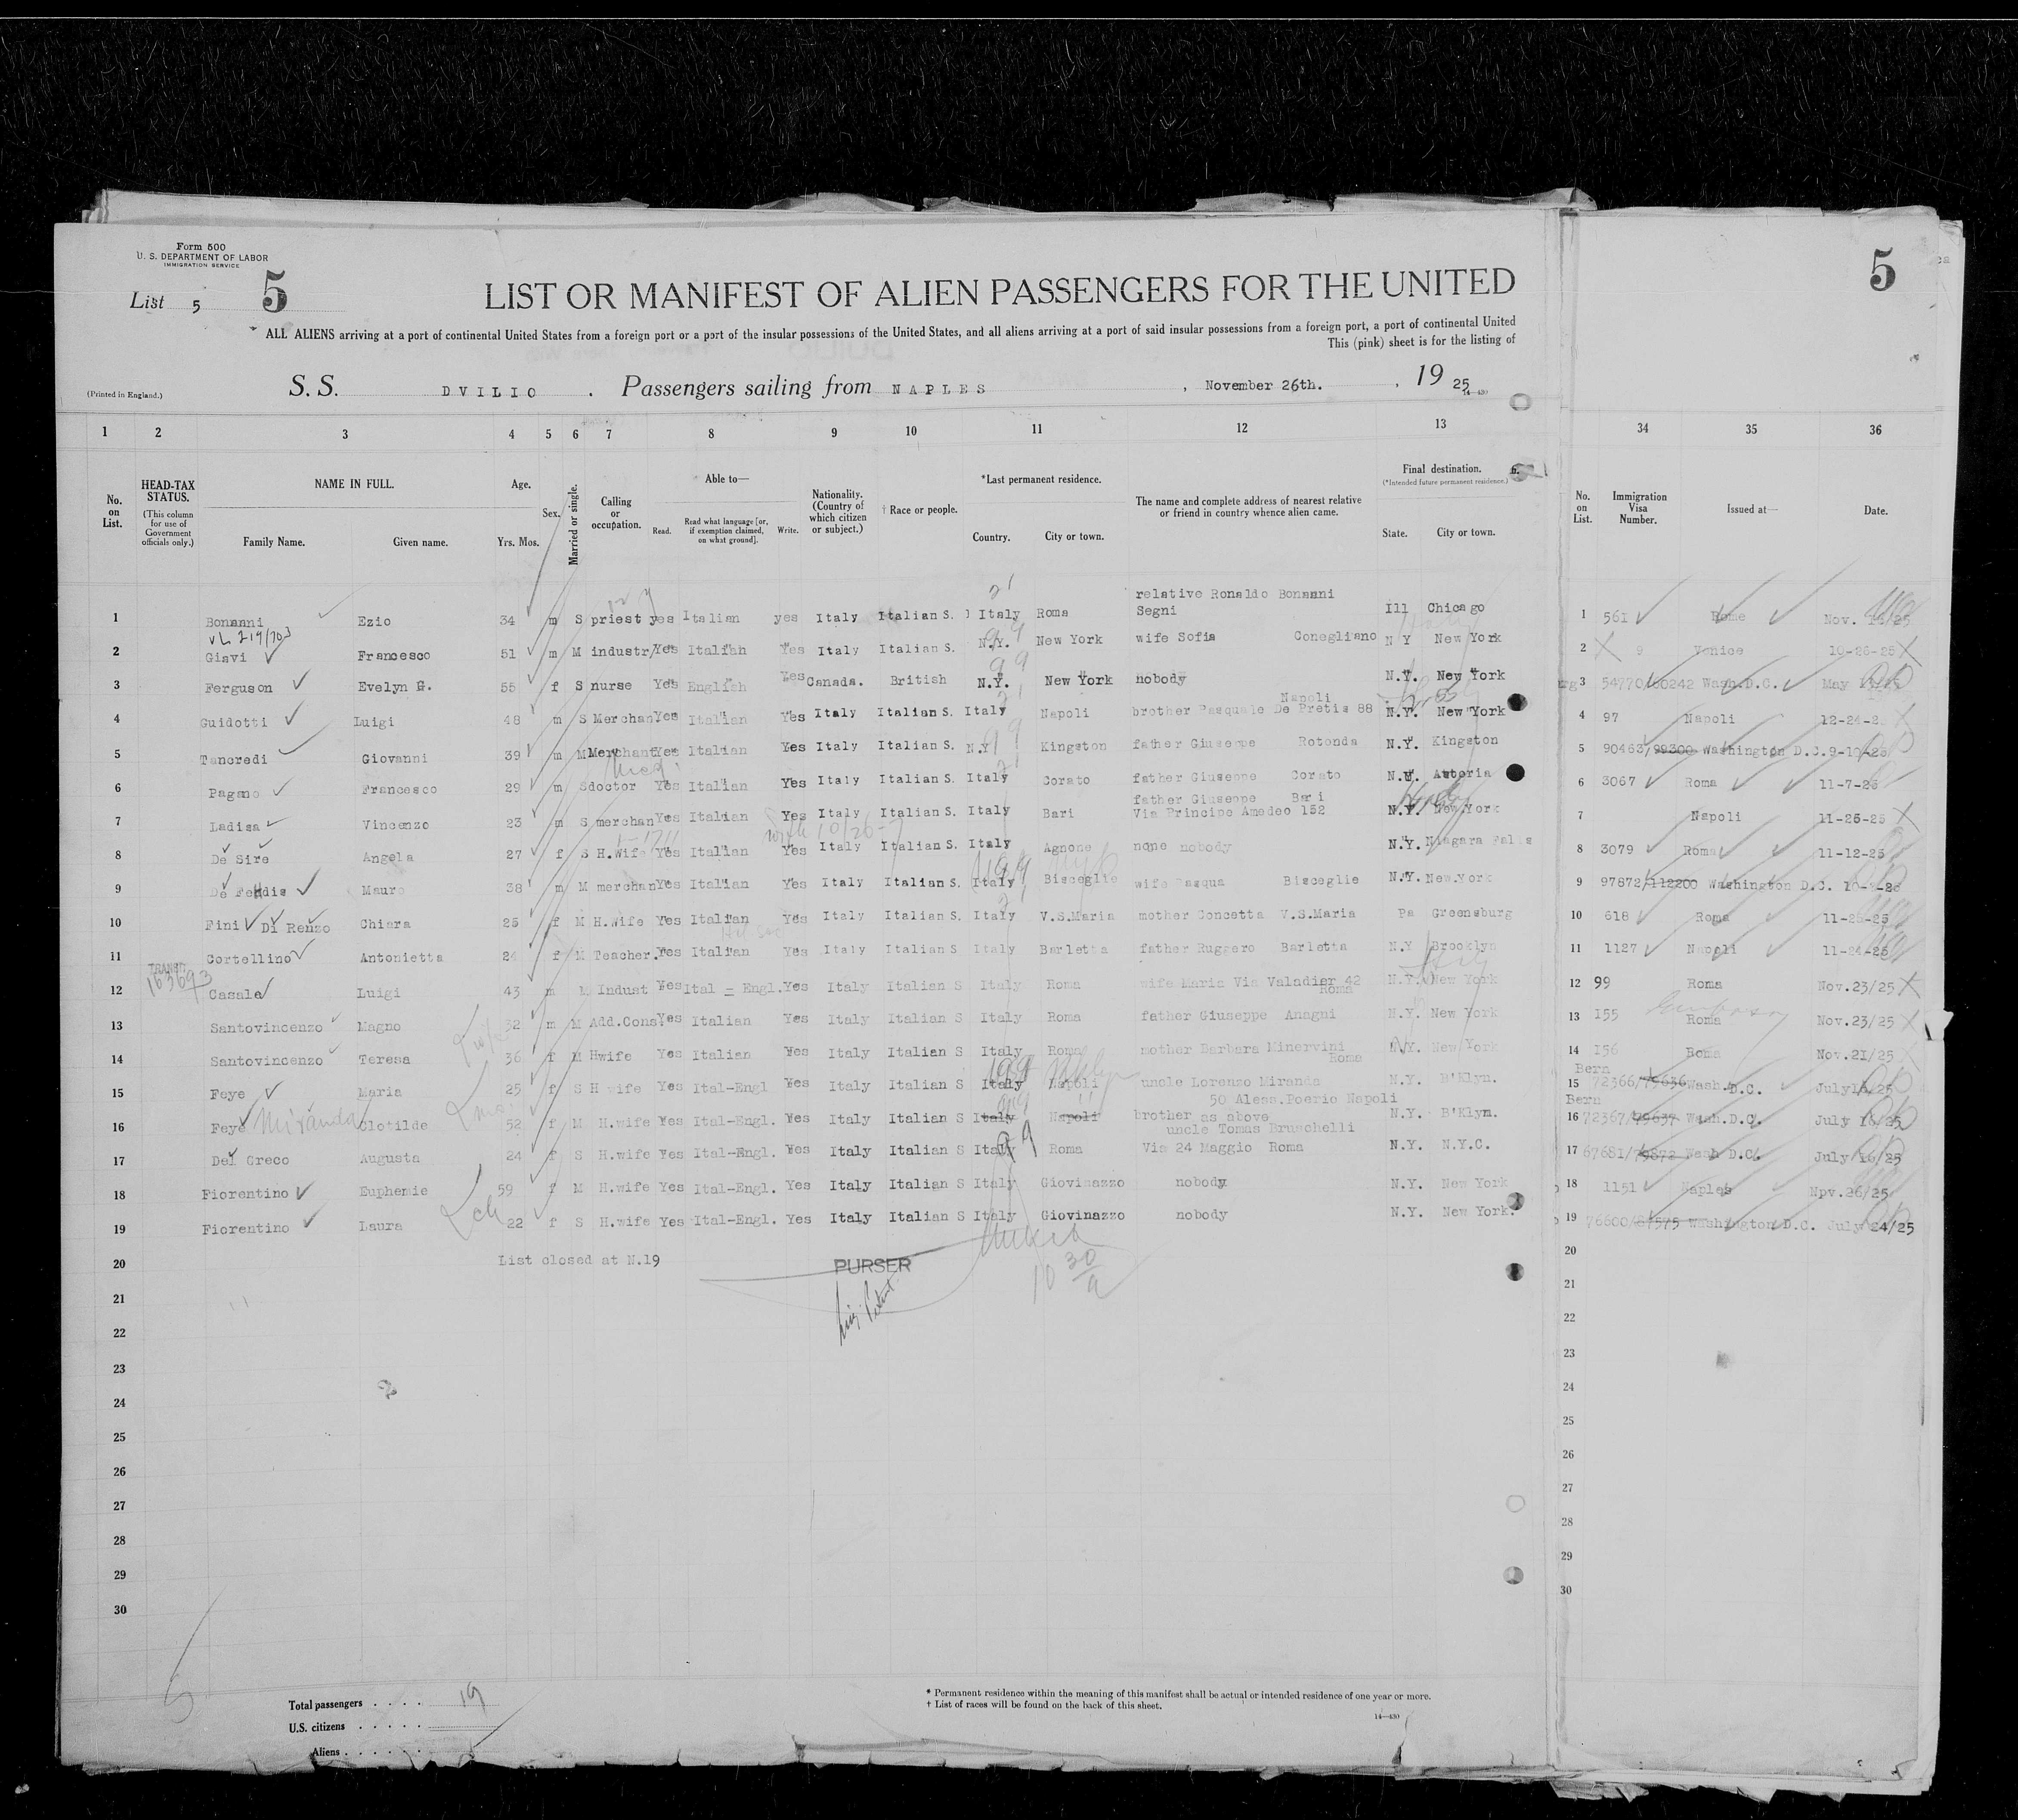 Form 500
U. S. DEPARTMENT OF LABOR
IMMIGRATION SERVICE
List 5 5
5
LIST OR MANIFEST OF ALIEN PASSENGERS FOR THE UNITED
ALL ALIENS arriving at a port of continental United States from a foreign port or a port of the insular possessions of the United States, and all aliens arriving at a port of said insular possessions from a foreign port, a port of continental United
This (pink) sheet is for the listing of
(Printed in England.)
S. S. DVILIO . Passengers sailing from NAPLES , November 26th. , 19 25
14—430
1 2 3 4 5 6 7 8 9 10 11 12 13 34 35 36
No. on List.
HEAD-TAX STATUS.
(This column for use of Government officials only.)
NAME IN FULL.
Family Name. Given name.
Age.
Yrs. Mos.
Sex.
Married or single.
Calling or occupation.
Able to—
Read. Read what language [or, if exemption claimed, on what ground]. Write.
Nationality. (Country of which citizen or subject.)
† Race or people.
*Last permanent residence.
Country. City or town.
The name and complete address of nearest relative or friend in country whence alien came.
Final destination.
(*Intended future permanent residence.)
State. City or town.
No. on List.
Immigration Visa Number.
Issued at—
Date.
relative Ronaldo Bonanni
1 Bonanni Ezio 34 m S priest yes Italian yes Italy Italian S. Italy Roma Segni Ill Chicago 1 561 Rome Nov.
VL 219/703
2 Gisvi Francesco 51 m M industr Yes Italian Yes Italy Italian S. N.Y. New York wife Sofia Conegliano N Y New York 2 9 Venice 10-26-25
3 Ferguson Evelyn G. 55 f S nurse Yes English Yes Canada. British N.Y. New York nobody N.Y. New York 3 54770/60242 Wash.D.C. May
Napoli
4 Guidotti Luigi 48 m S Merchan. Yes Italian Yes Italy Italian S. Italy Napoli brother Pasquale De Pretis 88 N.Y. New York 4 97 Napoli 12-24-2
5 Tancredi Giovanni 39 m M Merchant Yes Italian Yes Italy Italian S. N.Y. Kingston father Giuseppe Rotonda N.Y. Kingston 5 90463/99300 Washington D.C. 9-10-25
6 Pagano Francesco 29 m S doctor Yes Italian Yes Italy Italian S. Italy Corato father Giuseppe Corato N.Y. Astoria 6 3067 Roma 11-7-25
father Giuseppe Bari
7 Ladisa Vincenzo 23 m S merchan Yes Italian Yes Italy Italian S. Italy Bari Via Principe Amedeo 152 N.Y. New York 7 Napoli 11-25-25
8 De Sire Angela 27 f S H.Wife Yes Italian Yes Italy Italian S. Italy Agnone none nobody N.Y. Niagara Falls 8 3079 Roma 11-12-25
9 Mauro 38 m M merchan Yes Italian Yes Italy Italian S. Italy Bisceglie wife Pasqua Bisceglie N.Y. New.York 9 97872/112200 Washington D.C.
10 Fini Di Renzo Chiara 25 f M H.Wife Yes Italian Yes Italy Italian S. Italy V.S.Maria mother Concetta V.S.Maria Pa Greensburg 10 618 Roma 11-25-25
11 Cortellino Antonietta 24 f M Teacher. Yes Italian Yes Italy Italian S Italy Barletta father Ruggero Barletta N.Y Brooklyn 11 1127 Napoli 11-24-25
TRANSIT
163693
12 Casale Luigi 43 m M Indust Yes Ital – Engl. Yes Italy Italian S Italy Roma wife Maria Via Valadier 42 Roma N.Y. New York 12 99 Roma Nov.23/25
13 Santovincenzo Magno 32 m M Add.Cons. Yes Italian Yes Italy Italian S Italy Roma father Giuseppe Anagni N.Y. New York 13 155 Roma Nov.23/25
14 Santovincenzo Teresa 36 f M Hwife Yes Italian Yes Italy Italian S Italy Roma mother Barbara Minervini Roma N.Y. New York 14 156 Roma Nov.21/25
Bern
15 Feye Maria 25 f S H wife Yes Ital-Engl Yes Italy Italian S Italy Napoli uncle Lorenzo Miranda N.Y. B'Klyn. 15 72366/79636 Wash.D.C. July 16/25
50 Aless.Poerio Napoli
Bern
16 Feye Miranda Clotilde 52 f M H.wife Yes Ital-Engl. Yes Italy Italian S Italy Napoli brother as above N.Y. B'Klyn. 16 72367/79637 Wash.D.C. July 16/25
uncle Tomas Bruschelli
17 Del Greco Augusta 24 f S H.wife Yes Ital-Engl. Yes Italy Italian S Italy Roma Via 24 Maggio Roma N.Y. N.Y.C. 17 67681/79872 Wash D.C. July 16/25
18 Fiorentino Euphemie 59 f M H.wife Yes Ital-Engl. Yes Italy Italian S Italy Giovinazzo nobody N.Y. New York 18 1151 Naples Npv.26/25
19 Fiorentino Laura 22 f S H.wife Yes Ital-Engl. Yes Italy Italian S Italy Giovinazzo nobody N.Y. New York. 19 76600/87575 Washington D.C. July 24/25
20 List closed at N.19 PURSER 20
10 30/a
21 21
22 22
23 23
24 24
25 25
26 26
27 27
28 28
29 29
30 30
Total passengers . . . . 19
U.S. citizens . . . . .
Aliens . . . . . .
* Permanent residence within the meaning of this manifest shall be actual or intended residence of one year or more.
† List of races will be found on the back of this sheet.
14—430